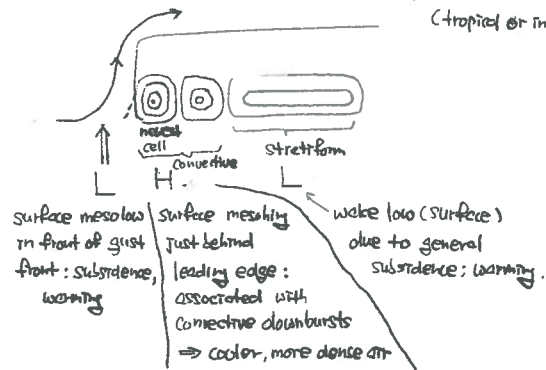 (tropical or in
newest
cell
convective
stratiform
L
H
L
surface mesolow
in front of gust
front: subsidence,
warming
surface mesohigh
just behind
leading edge:
associated with
convective downbursts
⇒ cooler, more dense air
wake low (surface)
due to general
subsidence; warming.